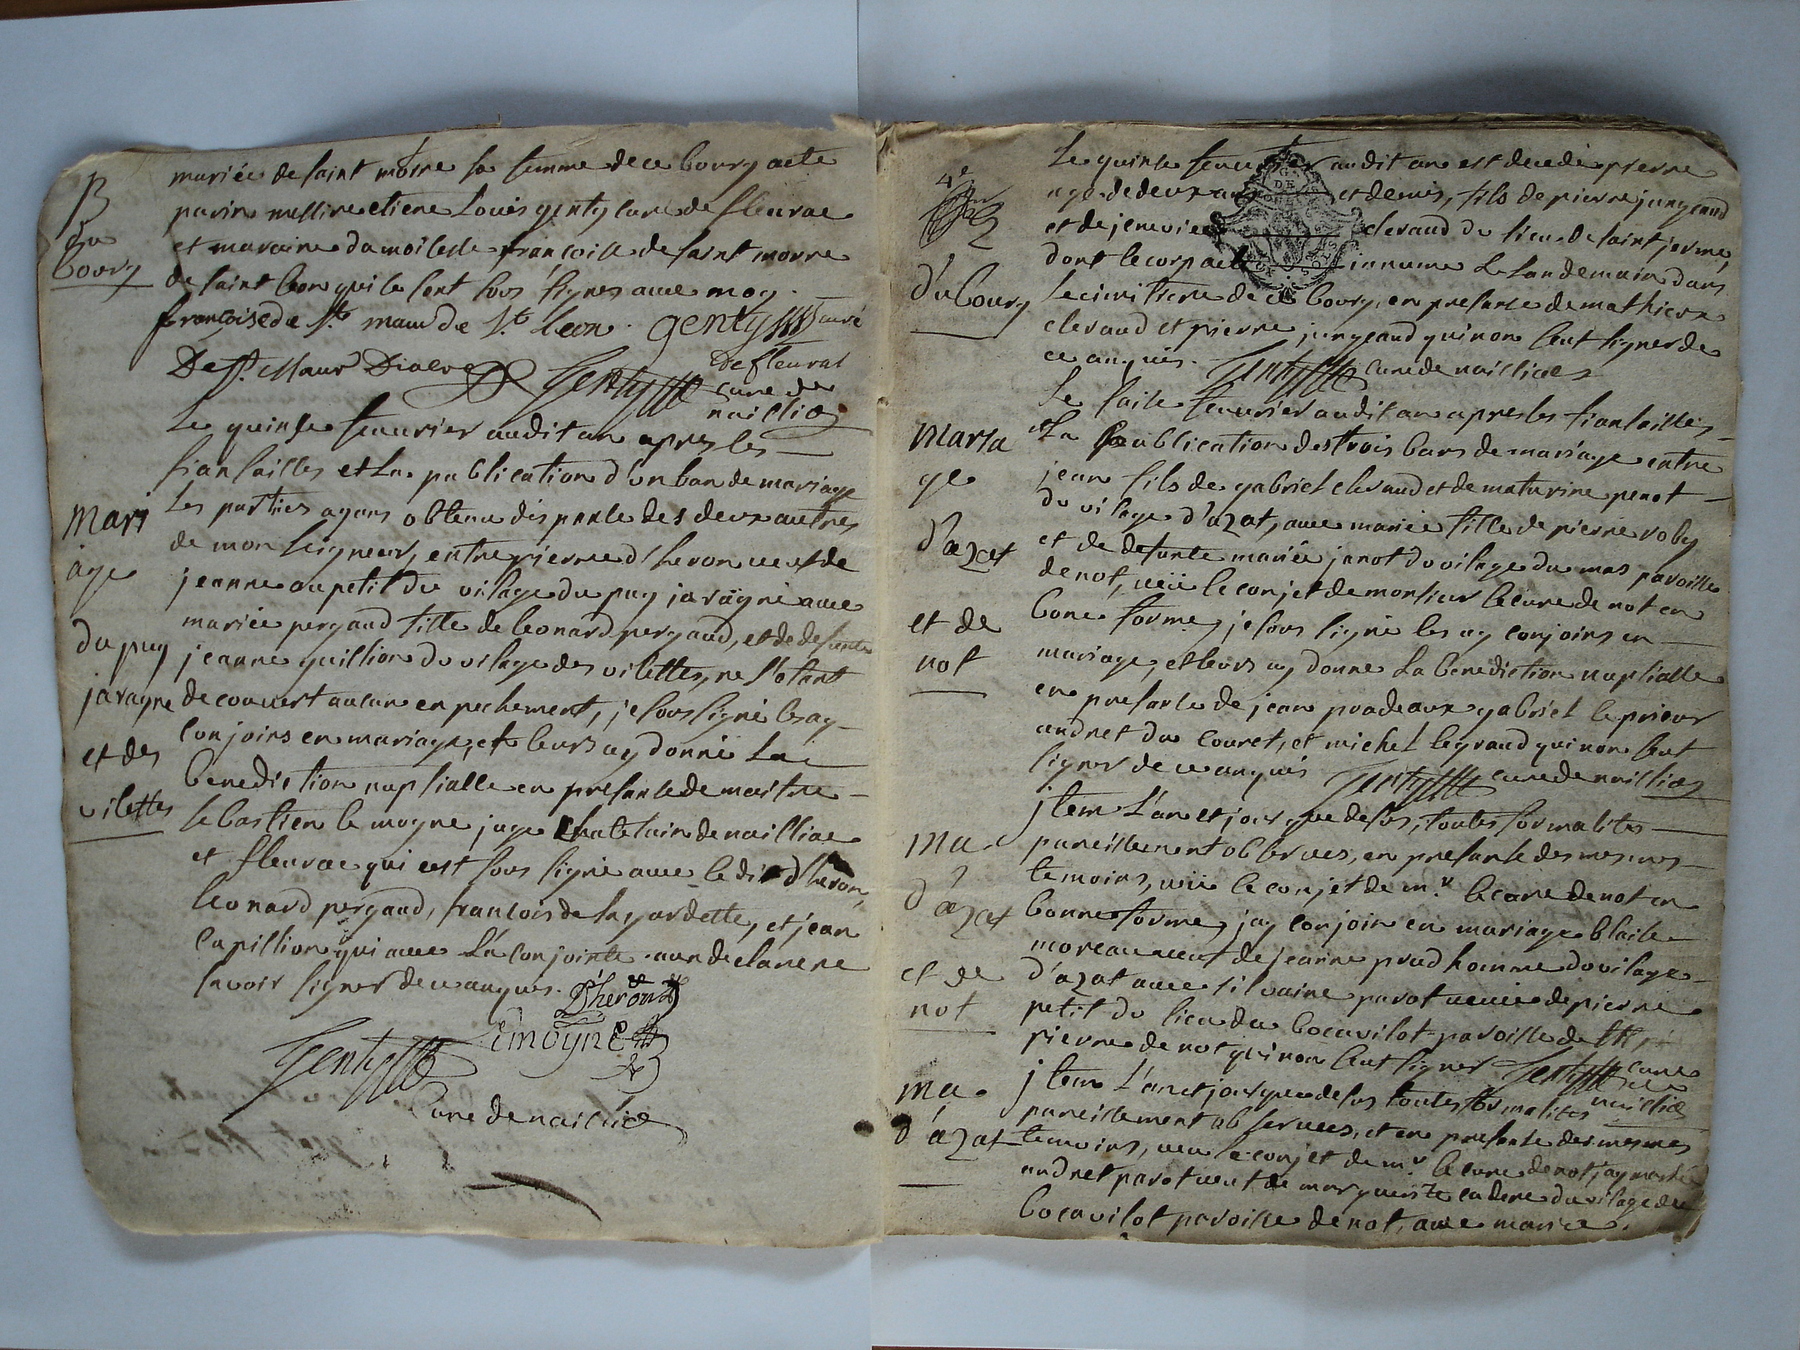 B
du
bourg
mariée de saint morre sa femme de ce bourg acte
parin messire etiene Louis genty cure de fleurac
et maraine damoiselle francoisse de saint morre
de saint leon qui se sont sous signes avec moy.
francoise de St. maur de St. leon. genty curé
De St. Maur Dialve genty de fleurat
cure de
naillia
Mari
age
du puy
jaragne
et des
vilettes
Le quinse feuurier audit an apres les
fiansailles et la publication d'un ban de mariage
les parties ayans obtenu dispansse des deux autres
de monseigneur, entre pierre d'heron veuf de
jeanne aupetit du vilage du puy jaragne avec
mariée pergaud fille de leonard pergaud, et de defunte
jeanne guillion du vilage des vilettes, ne s'etant
decouvert aucun enpechement, je sous signé les ay
conjoins en mariage, et leurs ay donné la
benediction nuptialle en presanse de maitre
sebastien le moyne juge chatelain de nailliac
et fleurac qui c'est sous signé avec le dit d'heron,
leonard pergaud, francois de la gardette, et jean
capillion qui avec la conjointe aux declare ne
savoir signer de ce anquis. Dheron
Lemoyne
genty
cure de naillia
4e
du bourg
Le quinse feuurier audit an est decedé pierre
age de deux ans et demis, fils de pierre jungeaud
et de jenevieve clevaud du lieu de saint jerme,
dont le corp a été innumé le landemain dans
le cimitiere de ce bourg, en presanse de mathieu
clevaud et pierre jungeaud qui non seut signer de
ce anquis. genty cure de nailliac
maria
ge
d'azat
et de
not
Le saise feuurier audit an apres les fiansailles
et la publication des trois bans de mariage entre
jean fils de gabriel clevaud et de maturine penot
du vilage d'azat, avec mariée fille de pierre roby
et de defunte mariée janot du vilage du mas paroisse
de not, veü le conjet de monsieur le cure de not en
bone forme, je sous signé les ay conjoins en
mariage, et leurs ay donne la benediction nuptialle
en presanse de jean pradeaux gabriel le prieur
andret du couret, et michel legrand qui non seut
signer de ce anquis genty cure de naillias
ma.
d'azat
et de
not
jtem L'an et jour que desus, toutes formalites
pareillement observes, en presanse des mesmes
temoins, veü le conjet de mr. le cure de not en
bonne forme, jay conjoin en mariage blaise
moreau veuf de jeanne prudhomme du vilage
d'azat avec silvaine parot veuve de pierre
petit du lieu du bocavilot paroisse de
pierre de not qui non seut signer genty cure
de
naillia
ma.
d'azat
jtem L'an et jour que desus toutes formalites
pareillement observees, et en presanse des mesmes
temoins, veu le conjet de mr. le cure de not jay marié
andret parot veuf de marguerite cadene du vilage du
bocavilot paroisse de not, avec mariée